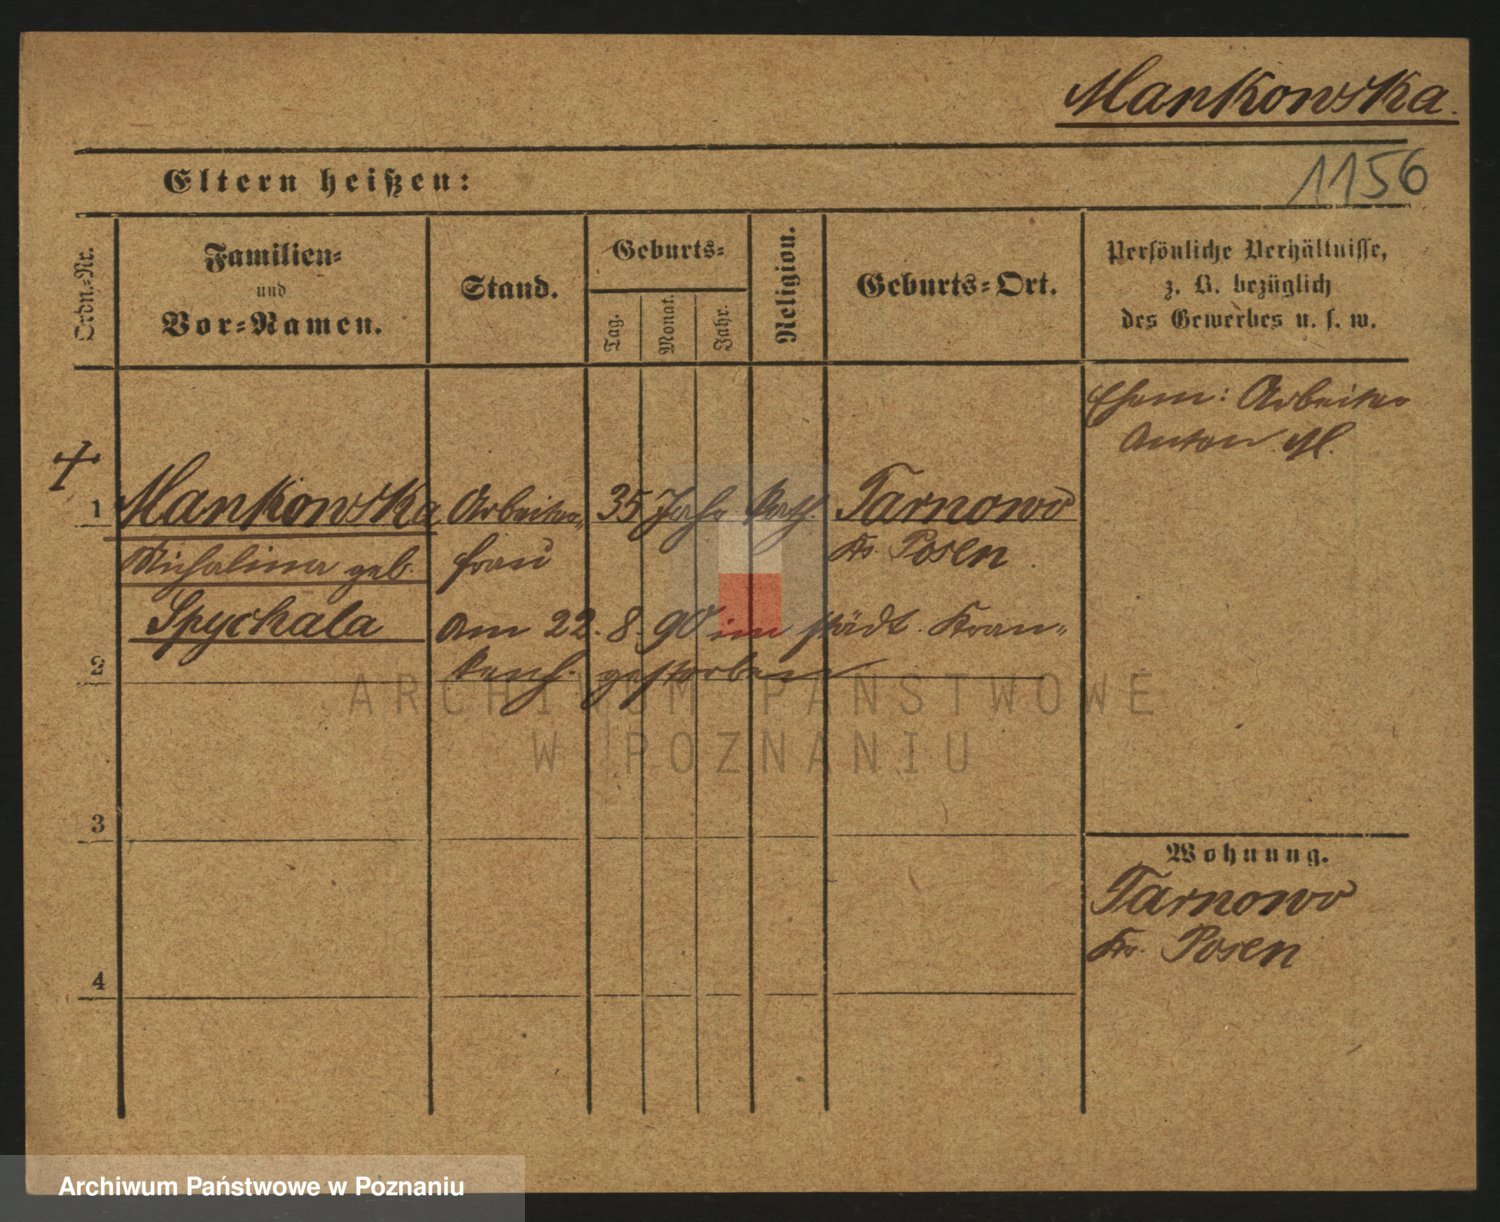 Mankowska.
1156
Eltern heißen:
Ordn.-Nr.
Familien-
und
Vor-Namen.
Stand.
Geburts-
Tag.
Monat.
Jahr.
Religion.
Geburts-Ort.
Persönliche Verhältnisse,
z. B. bezüglich
des Gewerbes u. s. w.
Ehem: Arbeiter
Anton M.
+
1 Mankowska Arbeiter- 35 Jahr kath. Tarnowo
Michalina geb. frau Kr. Posen
Spychala am 22.8.90 im städt. Kran-
2 kenh. gestorben
3
4
Wohnung.
Tarnowo
Kr. Posen
ARCHIWUM PAŃSTWOWE
W POZNANIU
Archiwum Państwowe w Poznaniu